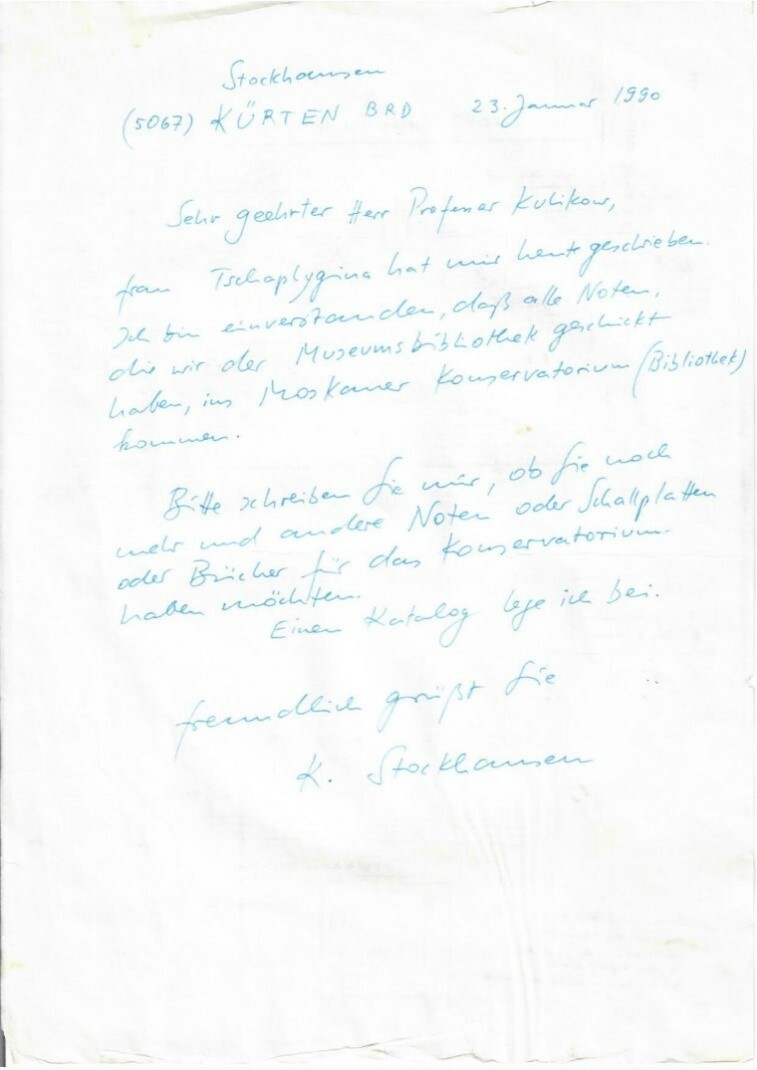 Stockhausen
(5067) KÜRTEN BRD 23. Januar 1990
Sehr geehrter Herr Professor Kulikow,
Frau Tschaplygina hat mir heute geschrieben.
Ich bin einverstanden, daß alle Noten,
die wir der Museumsbibliothek geschickt
haben, ins Moskauer Konservatorium (Bibliothek)
kommen.
Bitte schreiben Sie mir, ob Sie noch
mehr und andere Noten oder Schallplatten
oder Bücher für das Konservatorium
haben möchten.
Einen Katalog lege ich bei.
freundlich grüßt Sie
K. Stockhausen